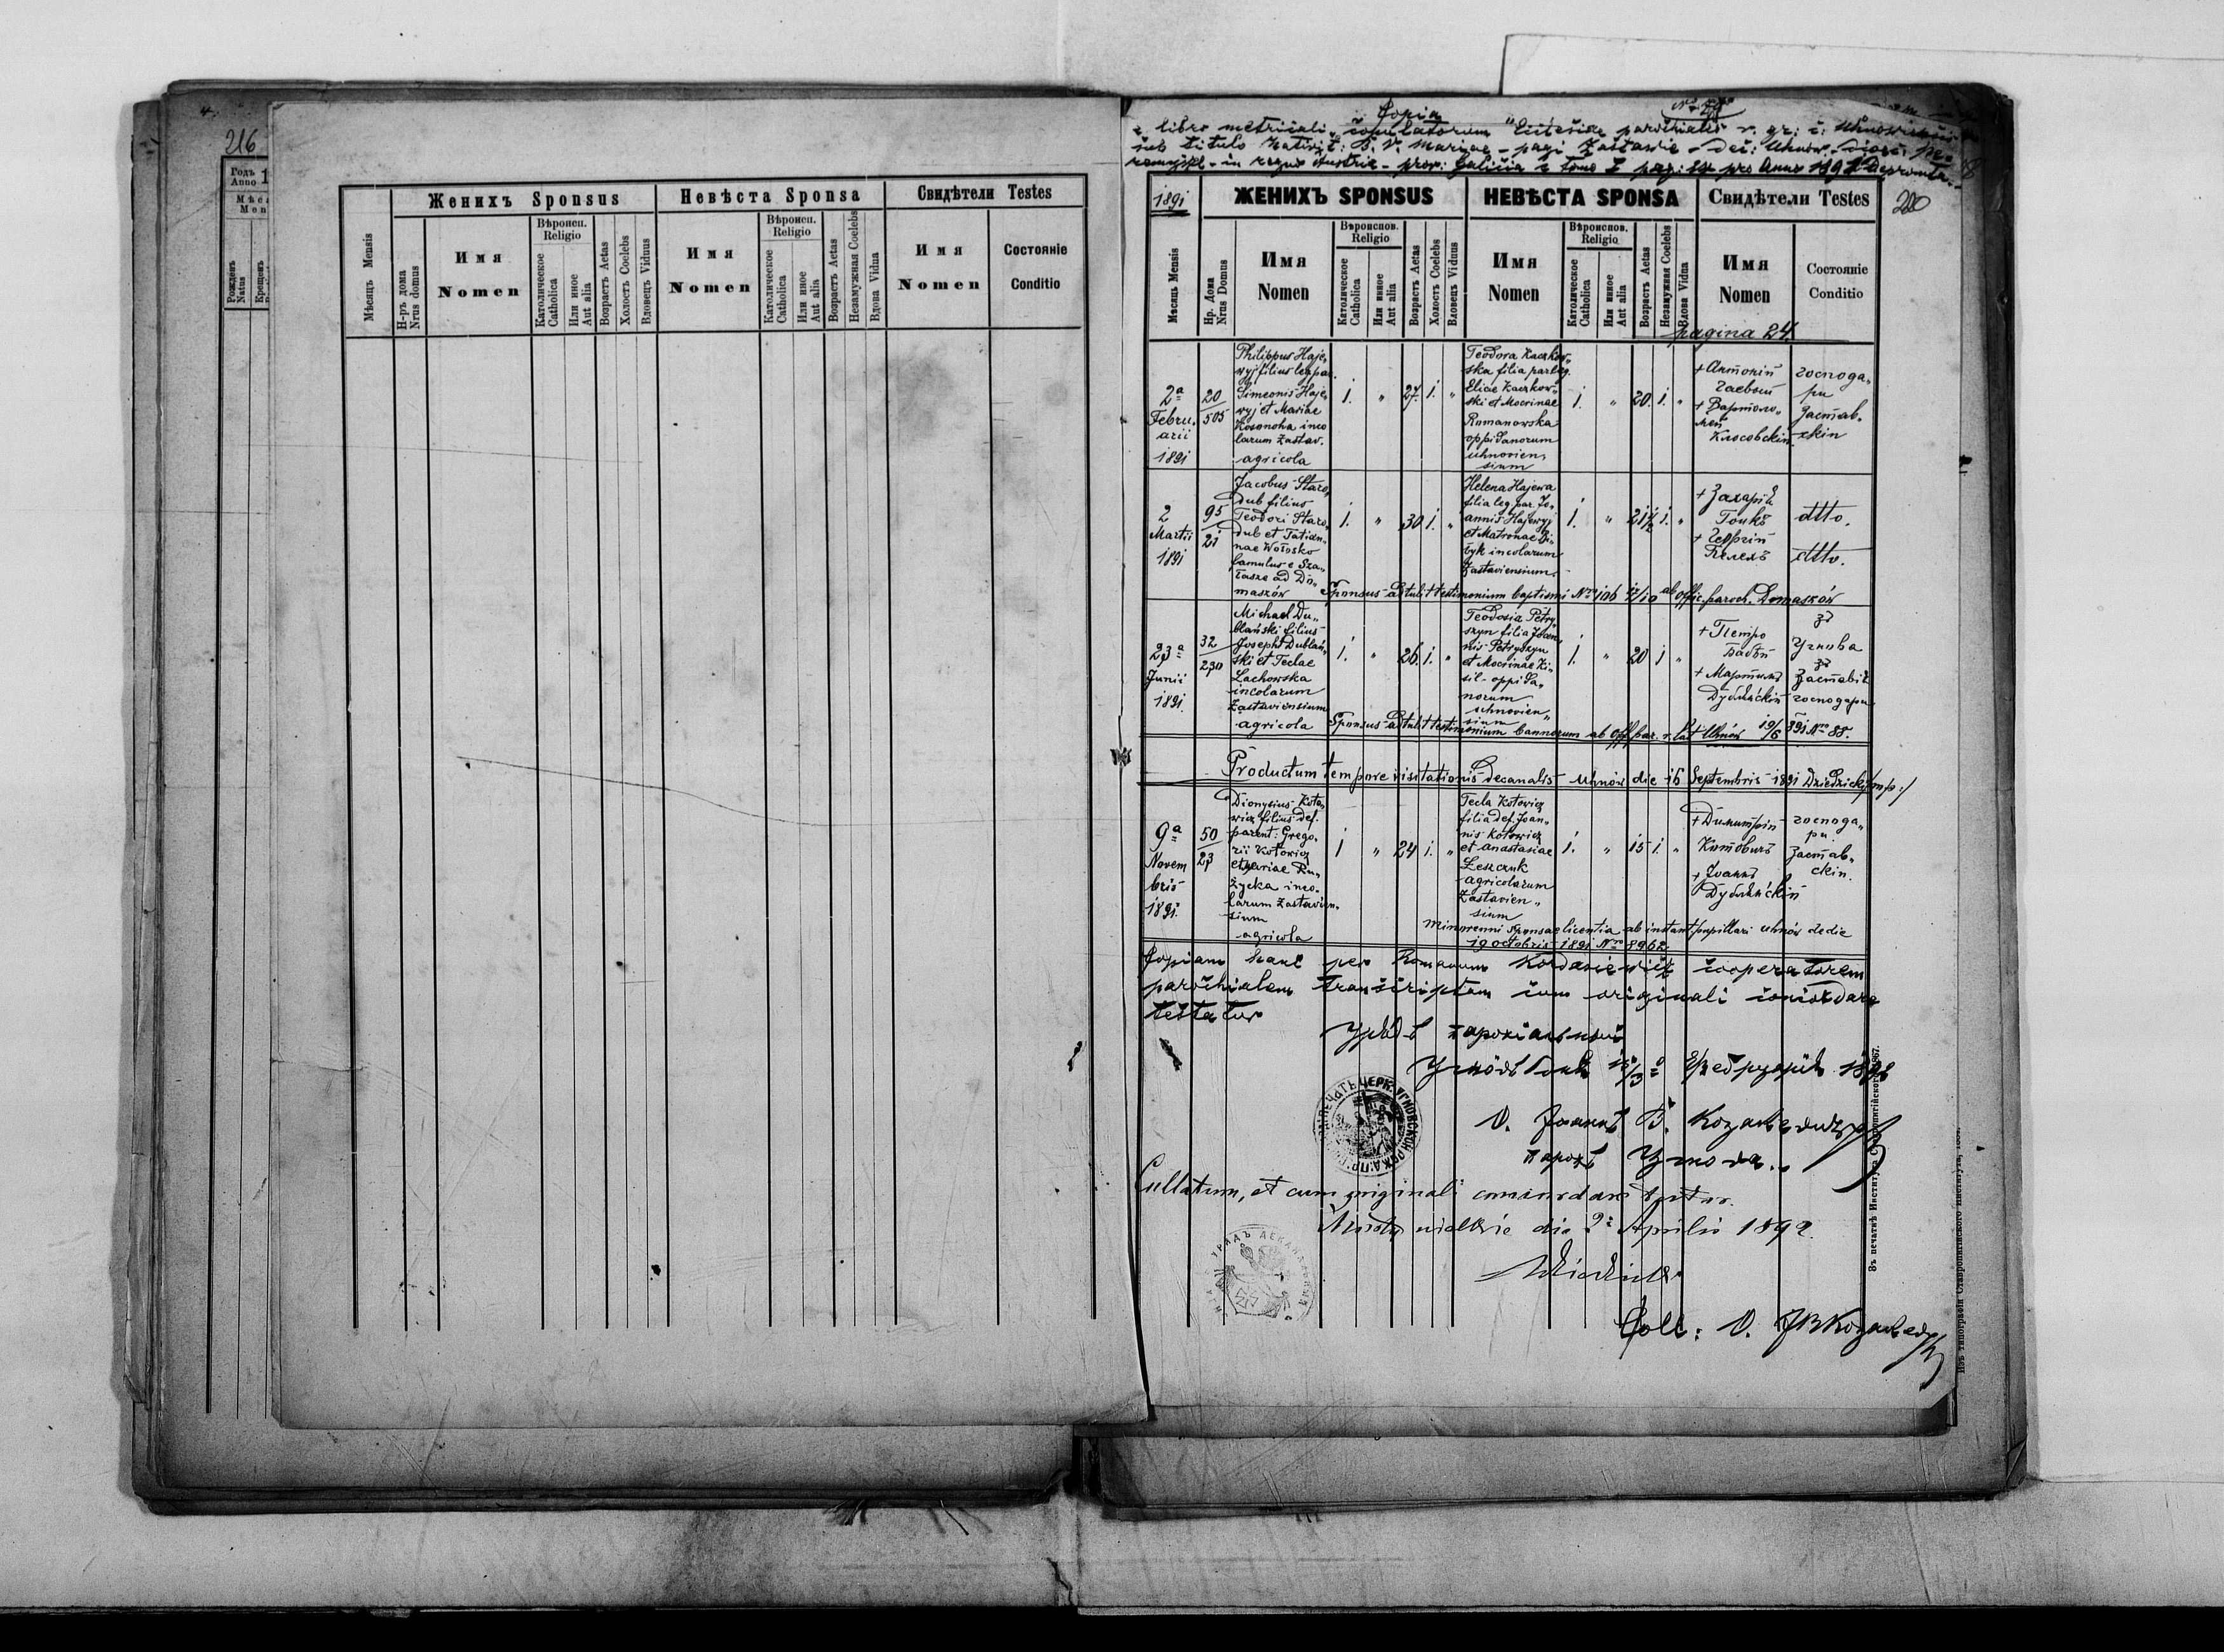 216
Годъ
Anno 1
Рожденъ
Natus
Крещенъ
Женихъ Sponsus
Невѣста Sponsa
Свидѣтели Testes
Мѣсяцъ Mensis
Н-ръ дома
Nrus domus
Имя
Nomen
Вѣроисп.
Religio
Католическое
Catholica
Или иное
Aut alia
Возрастъ Aetas
Холостъ Coelebs
Вдовецъ Viduus
Имя
Nomen
Вѣроисп.
Religio
Католическое
Catholica
Или иное
Aut alia
Возрастъ Aetas
Незамужная Coelebs
Вдова Vidua
Имя
Nomen
Состояніе
Conditio
Copia
e libro metricali copulatorum Ecclesiae parochialis r. gr: c:
sub titulo Nativit: B. V. Mariae - pagi Zastawie - Dec: Uhnów - Dioec: Pe-
remyśl - in regno Austriae - prov: Galicia e tomo I pag: 24 pro Anno 1891 depromta.
1891
ЖЕНИХЪ SPONSUS
НЕВѢСТА SPONSA
Свидѣтели Testes
220
Мѣсяцъ Mensis
Нр. Дома
Nrus Domus
Имя
Nomen
Вѣроиспов.
Religio
Католическое
Catholica
Или иное
Aut alia
Возрастъ Aetas
Холостъ Coelebs
Вдовецъ Viduus
Имя
Nomen
Вѣроиспов.
Religio
Католическое
Catholica
Или иное
Aut alia
Возрастъ Aetas
Незамужная Coelebs
Вдова Vidua
Имя
Nomen
Состояніе
Conditio
pagina 24.
2a
Febru,
arii
1891
20
505
Philippus Haje,
wyj filius leg par.
Simeonis Haje,
wyj et Mariae
Kosonoha inco
larum Zastav.
agricola
1. „ 27. 1. „
Teodora Kaczkow„
ska filia par leg.
Eliae Kaczkow„
ski et Mocrinae
Romanowska
oppidanorum
uhnovien,
sium
1. „ 20. 1. „
+ Антоній
Гаевый
+ Вартоло„
мей
Клосовскій
господа„
ри
Застав„
скіи
2
Martii
1891
95
21
Jacobus Staro„
dub filius
Teodori Staro„
dub et Tatian„
nae Wołosko
famulus e Sza„
łasze ad Do„
maszów
1. „ 30 1. „
Helena Hajewa
filia leg par Jo„
annis Hajewyj
et Matronae
byk incolarum
Zastaviensium.
1. „ 21½ 1. „
+ Захарій
Гоцкъ
+ Георгій
Пелехъ
dtto.
dtto.
Sponsus attulit testimonium baptismi Nro 106 ab offic. paroch. Domaszów
23a
Junii
1891.
32
230
Michael Du„
blański filius
Josephi Dublań„
ski et Teclae
Lachowska
incolarum
Zastaviensium
agricola
1. „ 26. 1. „
Teodosia Petry„
szyn filia Joan„
nis Petryszyn
et Mocrinae Ki„
sil - oppida„
norum
uhnovien„
sium
1. „ 20 1 „
+ Петро
Бабій
+ Мартинъ
Дублянскій
зъ
Угнова
зъ
Заставія
господари
Sponsus attulit testimonium bannorum ab off par. r. lat Uhnów 19/6 891 Nro 88.
Productum tempore visitationis decanalis Uhnów die 16 Septembris 1891 Dziedzicki /mp:/
9a
Novem
bris
1891.
50
23
Dionysius Koto„
wicz filius def.
parent: Grego„
rii Kotowicz
et Mariae Ru„
życka inco„
larum Zastavien„
sium
agricola
1 „ 24 1. „
Tecla Kotowicz
filia def. Joan„
nis Kotowicz
et Anastasiae
Leszczuk
agricolarum
Zastavien„
sium
1. „ 15 1. „
+ Димитрій
Котовичъ
+ Іоаннъ
Дублянскій
господа„
ри
Застав„
скіи.
minorenni sponsae licentia ab instant pupillari Uhnów de die
19 octobris 1891 Nro 8962.
Copiam hanc per Romanum Kordasiewicz cooperatorem
parochialem transcriptam cum originali concordare
testatur
Урядъ парохіальный
Фебруарія 1892
О. Іоаннъ В.
парохъ Угнова.
Collatum, et cum originali concordare testor.
die 2a Aprilis 1892.
Coll: О.